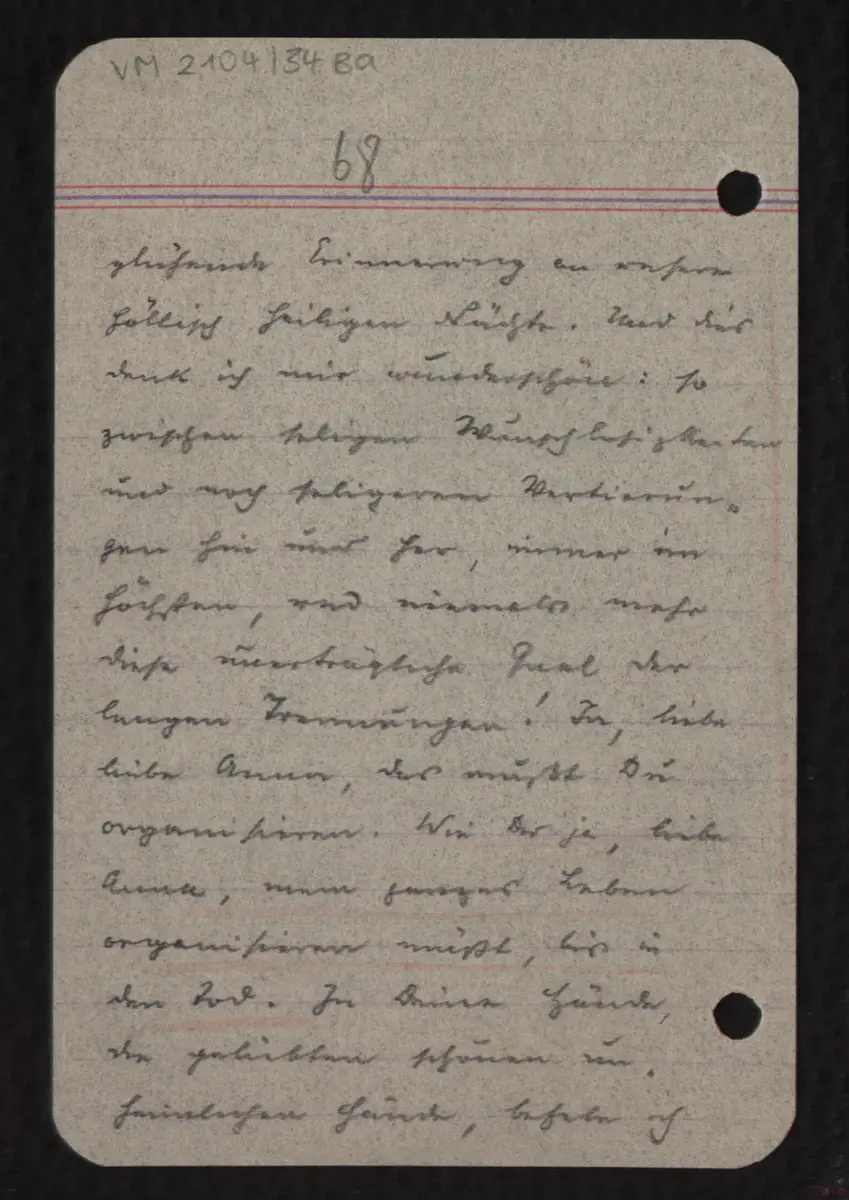 VM 2104/34 Ba
68
glühende Erinnerung an unsere
höllisch heiligen Nächte. Und dies
denk ich mir wunderschön: so
zwischen seligen Wunschlosigkeiten
und noch seligeren Vertierun„
gen hin und her, immer im
höchsten, und niemals mehr
diese unerträgliche Qual der
langen Trennungen! Ja, liebe
liebe Anna, das mußt Du
organisieren. Wie Du ja, liebe
Anna, mein ganzes Leben
organisieren mußt, bis in
den Tod. In Deine Hände,
die geliebten schönen un„
heimlichen Hände, befehle ich